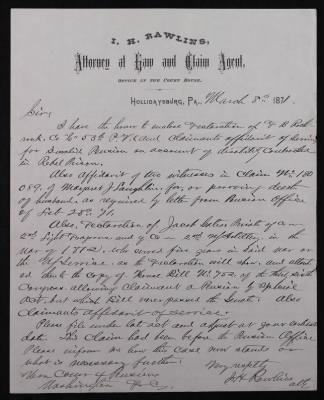 I. H. RAWLINS,
Attorney at Law and Claim Agent,
OFFICE IN THE COURT HOUSE.
HOLLIDAYSBURG, PA., March 8th 1871.
Sir;
I have the honor to enclose Declaration of
Co "C" 53d P.V. and Claimants affidavit of service
for Invalid Pension on account of disability Contracted
in Rebel Prison.
Also affidavit of two witnesses in Claim No. 130
089, of Margaret J. Laughlin, for, or proving death
of husband, as required by letter from Pension Office
of Feb 25th 71.
Also, Declaration of Jacob Private of
2nd Light Dragoons and of Co 2nd US Artillery, in the
War of 1812, who served five years in said war or
the US Service as the Declaration will show, and attach
ed thereto the Copy of House Bill No. 752 of the
Congress allowing Claimant a Pension by Special
Act, but which Bill never passed the Senate. Also
Claimants affidavit of service.
Please file under last act and adjust at your earliest
date. This Claim had been before the Pension Office
Please inform me how this case now stands or
what is necessary further.
Very respty
Hon Com of Pensions
I H Rawlins
Washington D.C.
atty